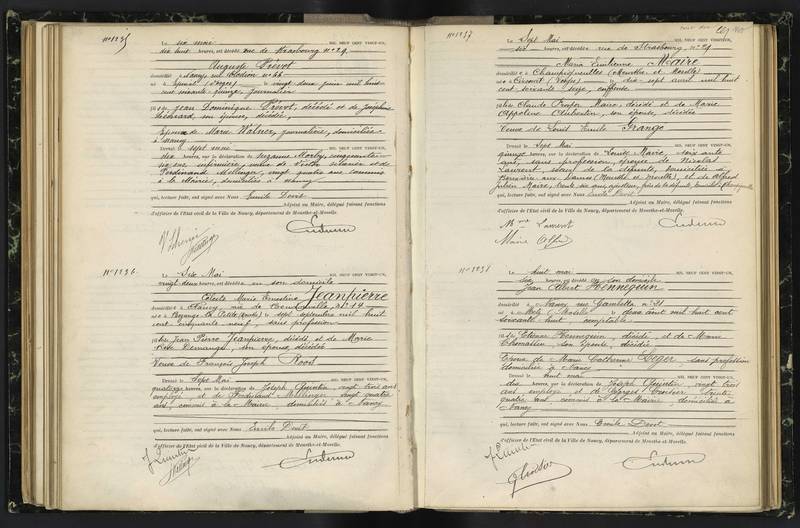 N° 1235
Le six mai MIL NEUF CENT VINGT-UN,
dix huit heures, est décédé rue de Strasbourg n° 29,
Auguste Prévot
domicilié à Nancy
né à Epinal (Vosges) le vingt deux juin mil huit
cent soixante quinze, journalier
fils de Jean Dominique Prévot, décédé et de Joséphine
son épouse, décédée
Epoux de Marie Wälner, journalière, domiciliée
à Nancy
Dressé le sept mai MIL NEUF CENT VINGT-UN,
dix heures, sur la déclaration de Suzanne
Ferdinand Mellinger, vingt quatre ans commis
à la Mairie, domiciliés à Nancy
qui, lecture faite, ont signé avec Nous Emile Devit
Adjoint au Maire, délégué faisant fonctions
d'officier de l'Etat civil de la Ville de Nancy, département de Meurthe-et-Moselle.
N° 1236
Le Six Mai MIL NEUF CENT VINGT-UN,
vingt deux heures, est décédée en son domicile
Céleste Marie Ernestine Jeanpierre
domiciliée à Nancy, rue de n° 14
née à le sept septembre mil huit
cent cinquante neuf, sans profession
fille de Jean Pierre Jeanpierre, décédé et de Marie
son épouse décédée
Veuve de François Joseph Roos
Dressé le Sept Mai MIL NEUF CENT VINGT-UN,
quatorze heures, sur la déclaration de Joseph Quentin, vingt trois ans
employé, et de Ferdinand Mellinger vingt quatre
ans, commis à la Mairie, domiciliés à Nancy
qui, lecture faite, ont signé avec Nous Emile Devit
Adjoint au Maire, délégué faisant fonctions
d'officier de l'Etat civil de la Ville de Nancy, département de Meurthe-et-Moselle.
J Quentin
N° 1237
Le Sept Mai MIL NEUF CENT VINGT-UN,
six heures, est décédée rue de Strasbourg n° 29
Maria Emilienne Maire
domiciliée à Champigneulles (Meurthe et Moselle)
née à (Vosges) le dix sept avril mil huit
cent soixante seize,
fille de Claude Prosper Maire, décédé et de Marie
Appoline Aubertin, son épouse, décédée
Veuve de Louis Emile Grange
Dressé le Sept Mai MIL NEUF CENT VINGT-UN,
quinze heures, sur la déclaration de Louise Maire, soixante
ans, sans profession, épouse de Nicolas
Laurent, soeur de la défunte, domiciliée à
(Meurthe et Moselle), et de Alfred
Maire, trente six ans, ajusteur, frère de la défunte, domicilié à Champigneulles
qui, lecture faite, ont signé avec Nous Emile Devit
Adjoint au Maire, délégué faisant fonctions
d'officier de l'Etat civil de la Ville de Nancy, département de Meurthe-et-Moselle.
Mme Laurent
Maire
N° 1238
Le huit mai MIL NEUF CENT VINGT-UN,
six heures, est décédé en son domicile
Jean Albert Hennequin
domicilié à Nancy rue Gambetta n° 31
né à Metz (Moselle) le deux août mil huit cent
soixante huit, comptable
fils de Etienne Hennequin, décédé et de Marie
Thomassin son épouse, décédée
Epoux de Marie Catherine Veger sans profession
domiciliée à Nancy
Dressé le huit mai MIL NEUF CENT VINGT-UN,
dix heures, sur la déclaration de Joseph Quentin, vingt trois
ans, employé et de Georges trente
quatre ans commis à la Mairie, domiciliés à
Nancy
qui, lecture faite, ont signé avec Nous Emile Devit
Adjoint au Maire, délégué faisant fonctions
d'officier de l'Etat civil de la Ville de Nancy, département de Meurthe-et-Moselle.